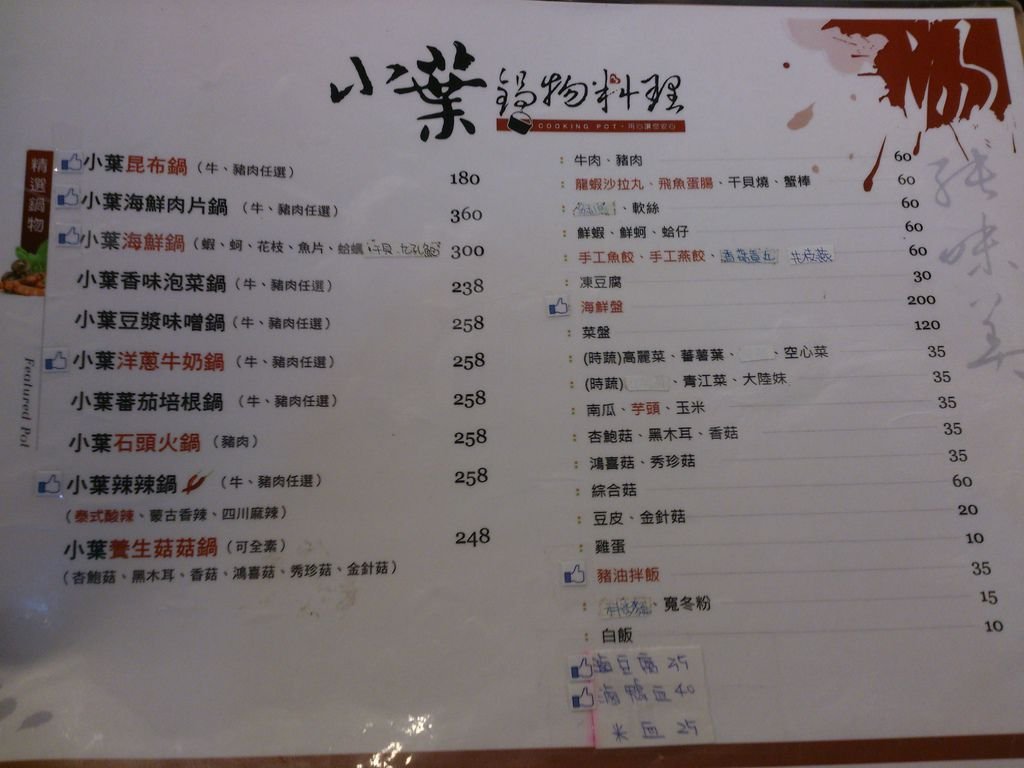 小葉 鍋物料理
COOKING POT・用心讓您安心
湯
純味美
精選鍋物
Featured Pot
小葉昆布鍋（牛、豬肉任選） 180
小葉海鮮肉片鍋（牛、豬肉任選） 360
小葉海鮮鍋（蝦、蚵、花枝、魚片、蛤蠣 300
小葉香味泡菜鍋（牛、豬肉任選） 238
小葉豆漿味噌鍋（牛、豬肉任選） 258
小葉洋蔥牛奶鍋（牛、豬肉任選） 258
小葉蕃茄培根鍋（牛、豬肉任選） 258
小葉石頭火鍋（豬肉） 258
小葉辣辣鍋（牛、豬肉任選） 258
（泰式酸辣、蒙古香辣、四川麻辣）
小葉養生菇菇鍋（可全素） 248
（杏鮑菇、黑木耳、香菇、鴻喜菇、秀珍菇、金針菇）
：牛肉、豬肉 60
：龍蝦沙拉丸、飛魚蛋腸、干貝燒、蟹棒 60
：、軟絲 60
：鮮蝦、鮮蚵、蛤仔 60
：手工魚餃、手工燕餃、 60
：凍豆腐 30
海鮮盤 200
：菜盤 120
：(時蔬)高麗菜、蕃薯葉、、空心菜 35
：(時蔬)、青江菜、大陸妹 35
：南瓜、芋頭、玉米 35
：杏鮑菇、黑木耳、香菇 35
：鴻喜菇、秀珍菇 35
：綜合菇 60
：豆皮、金針菇 20
：雞蛋 10
豬油拌飯 35
：、寬冬粉 15
：白飯 10
滷豆腐 25
滷鴨血 40
米血 25